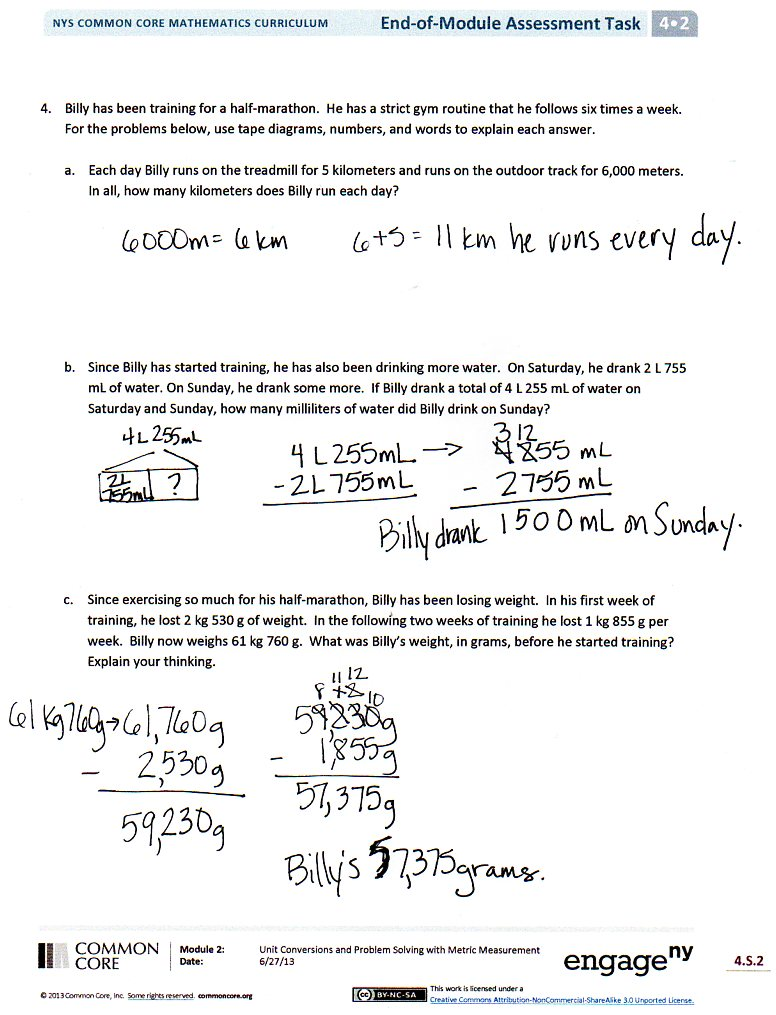 NYS COMMON CORE MATHEMATICS CURRICULUM End-of-Module Assessment Task 4•2
4. Billy has been training for a half-marathon. He has a strict gym routine that he follows six times a week.
For the problems below, use tape diagrams, numbers, and words to explain each answer.
a. Each day Billy runs on the treadmill for 5 kilometers and runs on the outdoor track for 6,000 meters.
In all, how many kilometers does Billy run each day?
6000m = 6 km 6+5 = 11 km he runs every day.
b. Since Billy has started training, he has also been drinking more water. On Saturday, he drank 2 L 755
mL of water. On Sunday, he drank some more. If Billy drank a total of 4 L 255 mL of water on
Saturday and Sunday, how many milliliters of water did Billy drink on Sunday?
4L 255mL
2L
755mL ?
4 L 255mL →
- 2L 755mL
3 12
4255 mL
- 2755 mL
Billy drank 1500 mL on Sunday.
c. Since exercising so much for his half-marathon, Billy has been losing weight. In his first week of
training, he lost 2 kg 530 g of weight. In the following two weeks of training he lost 1 kg 855 g per
week. Billy now weighs 61 kg 760 g. What was Billy's weight, in grams, before he started training?
Explain your thinking.
61 kg 760g → 61,760g
- 2,530g
59,230g
11 12
8 1 2 10
59,230g
- 1,855g
57,375g
Billy's 57,375 grams.
COMMON
CORE
Module 2: Unit Conversions and Problem Solving with Metric Measurement
Date: 6/27/13
engageny
4.S.2
© 2013 Common Core, Inc. Some rights reserved. commoncore.org
cc BY-NC-SA
This work is licensed under a
Creative Commons Attribution-NonCommercial-ShareAlike 3.0 Unported License.